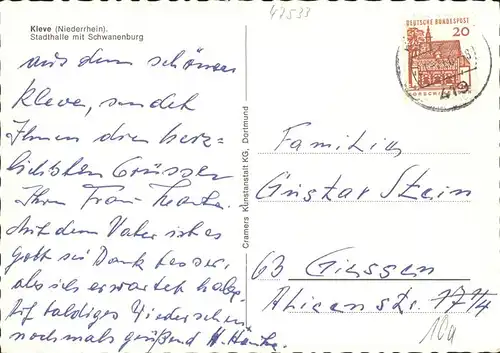 47533
Kleve (Niederrhein).
Stadthalle mit Schwanenburg
DEUTSCHE BUNDESPOST
20
419
aus dem schönen
Kleve, sendet
Ihnen die herz-
lichsten Grüssen
Ihre Frau
Mit dem Vater ist es
gott sei Dank besser,
als ich erwartet habe,
Auf baldiges Wiedersehen
nochmals grüßend H.
Cramers Kunstanstalt KG, Dortmund
Familie
Gustav Stein
63 Giessen
Alicenstr. 17/4
10a